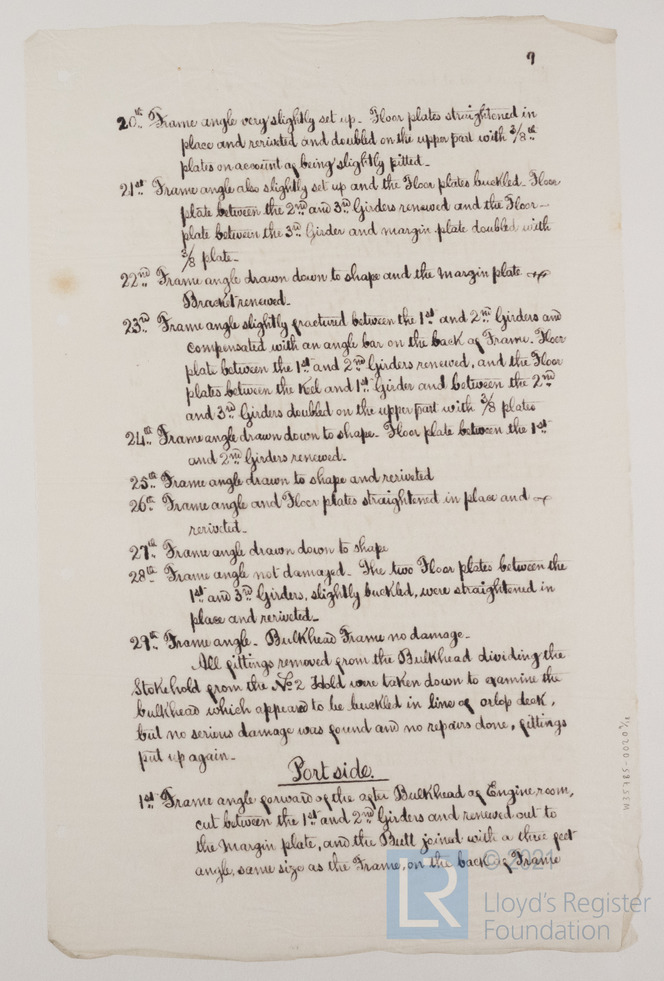 9
20th Frame angle very slightly set up. Floor plates straightened in
place and reriveted and doubled on the upper part with 3/8th
plates on account of being slightly pitted.
21st Frame angle also slightly set up and the Floor plates buckled. Floor
plate between the 2nd and 3rd Girders renewed and the Floor-
plate between the 3rd Girder and margin plate doubled with
3/8 plate.
22nd Frame angle drawn down to shape and the margin plate
Bracket renewed.
23rd Frame angle slightly fractured between the 1st and 2nd Girders and
compensated with an angle bar on the back of Frame. Floor
plate between the 1st and 2nd Girders renewed, and the Floor
plates between the Keel and 1st Girder and between the 2nd
and 3rd Girders doubled on the upper part with 3/8 plates
24th Frame angle drawn down to shape. Floor plate between the 1st
and 2nd Girders renewed.
25th Frame angle drawn to shape and reriveted
26th Frame angle and Floor plates straightened in place and
reriveted.
27th Frame angle drawn down to shape
28th Frame angle not damaged. The two Floor plates between the
1st and 3rd Girders, slightly buckled, were straightened in
place and reriveted.
29th Frame angle. Bulkhead Frame no damage.
All fittings removed from the Bulkhead dividing the
Stokehold from the No 2 Hold were taken down to examine the
bulkhead which appeared to be buckled in line of orlop deck,
but no serious damage was found and no repairs done, fittings
put up again.
Port side.
1st Frame angle forward of the after Bulkhead of Engine room,
cut between the 1st and 2nd Girders and renewed out to
the margin plate, and the Butt joined with a three feet
angle, same size as the Frame, on the back of Frame
W35785-0020 9/11
© 2021
LR
Lloyd's Register
Foundation